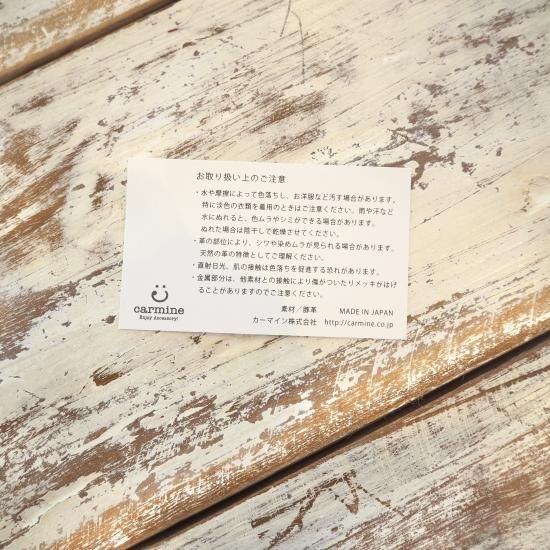 お取り扱い上のご注意
・水や摩擦によって色落ちし、お洋服など汚す場合があります。
特に淡色の衣類を着用のときはご注意ください。雨や汗など
水にぬれると、色ムラやシミができる場合があります。
ぬれた場合は陰干しで乾燥させてください。
・革の部位により、シワや染めムラが見られる場合があります。
天然の革の特徴としてご理解ください。
・直射日光、肌の接触は色落ちを促進する恐れがあります。
・金属部分は、他素材との接触により傷がついたりメッキがはげ
ることがありますのでご注意ください。
素材／豚革 MADE IN JAPAN
カーマイン株式会社 http://carmine.co.jp
carmine
Enjoy Accessory!